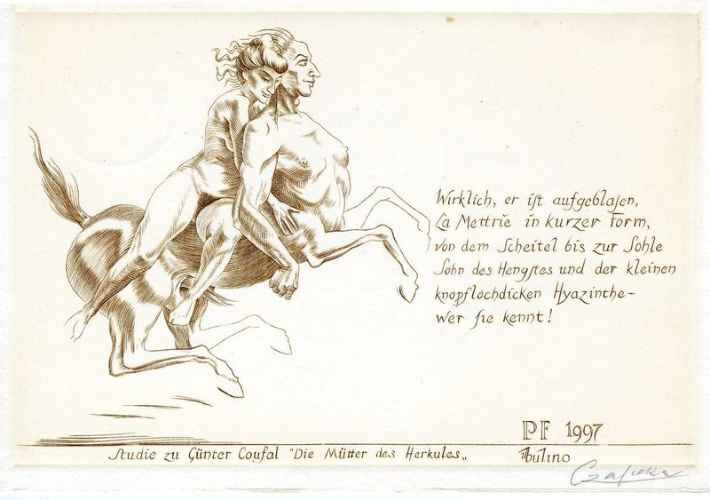 Wirklich, er ist aufgeblasen,
La Mettrie in kurzer Form,
von dem Scheitel bis zur Sohle
Sohn des Hengstes und der kleinen
knopflochdicken Hyazinthe-
wer sie kennt!
PF 1997
Studie zu Günter Coufal "Die Mütter des Herkules„